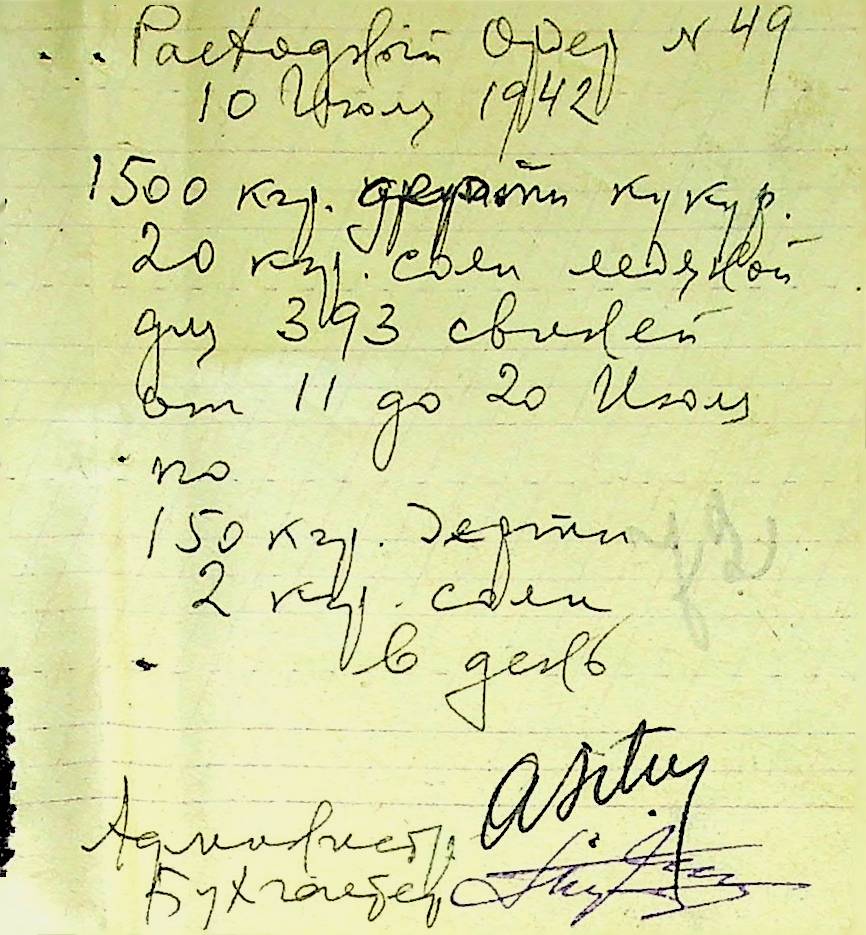 Расходный Ордер № 49
10 Июля 1942
1500 кгр. дерти кукур.
20 кгр. соли ледяной
для 393 свиней
от 11 до 20 Июля
по
150 кгр. Дерти
2 кгр. соли
в день
Администр.
Бухгалтер